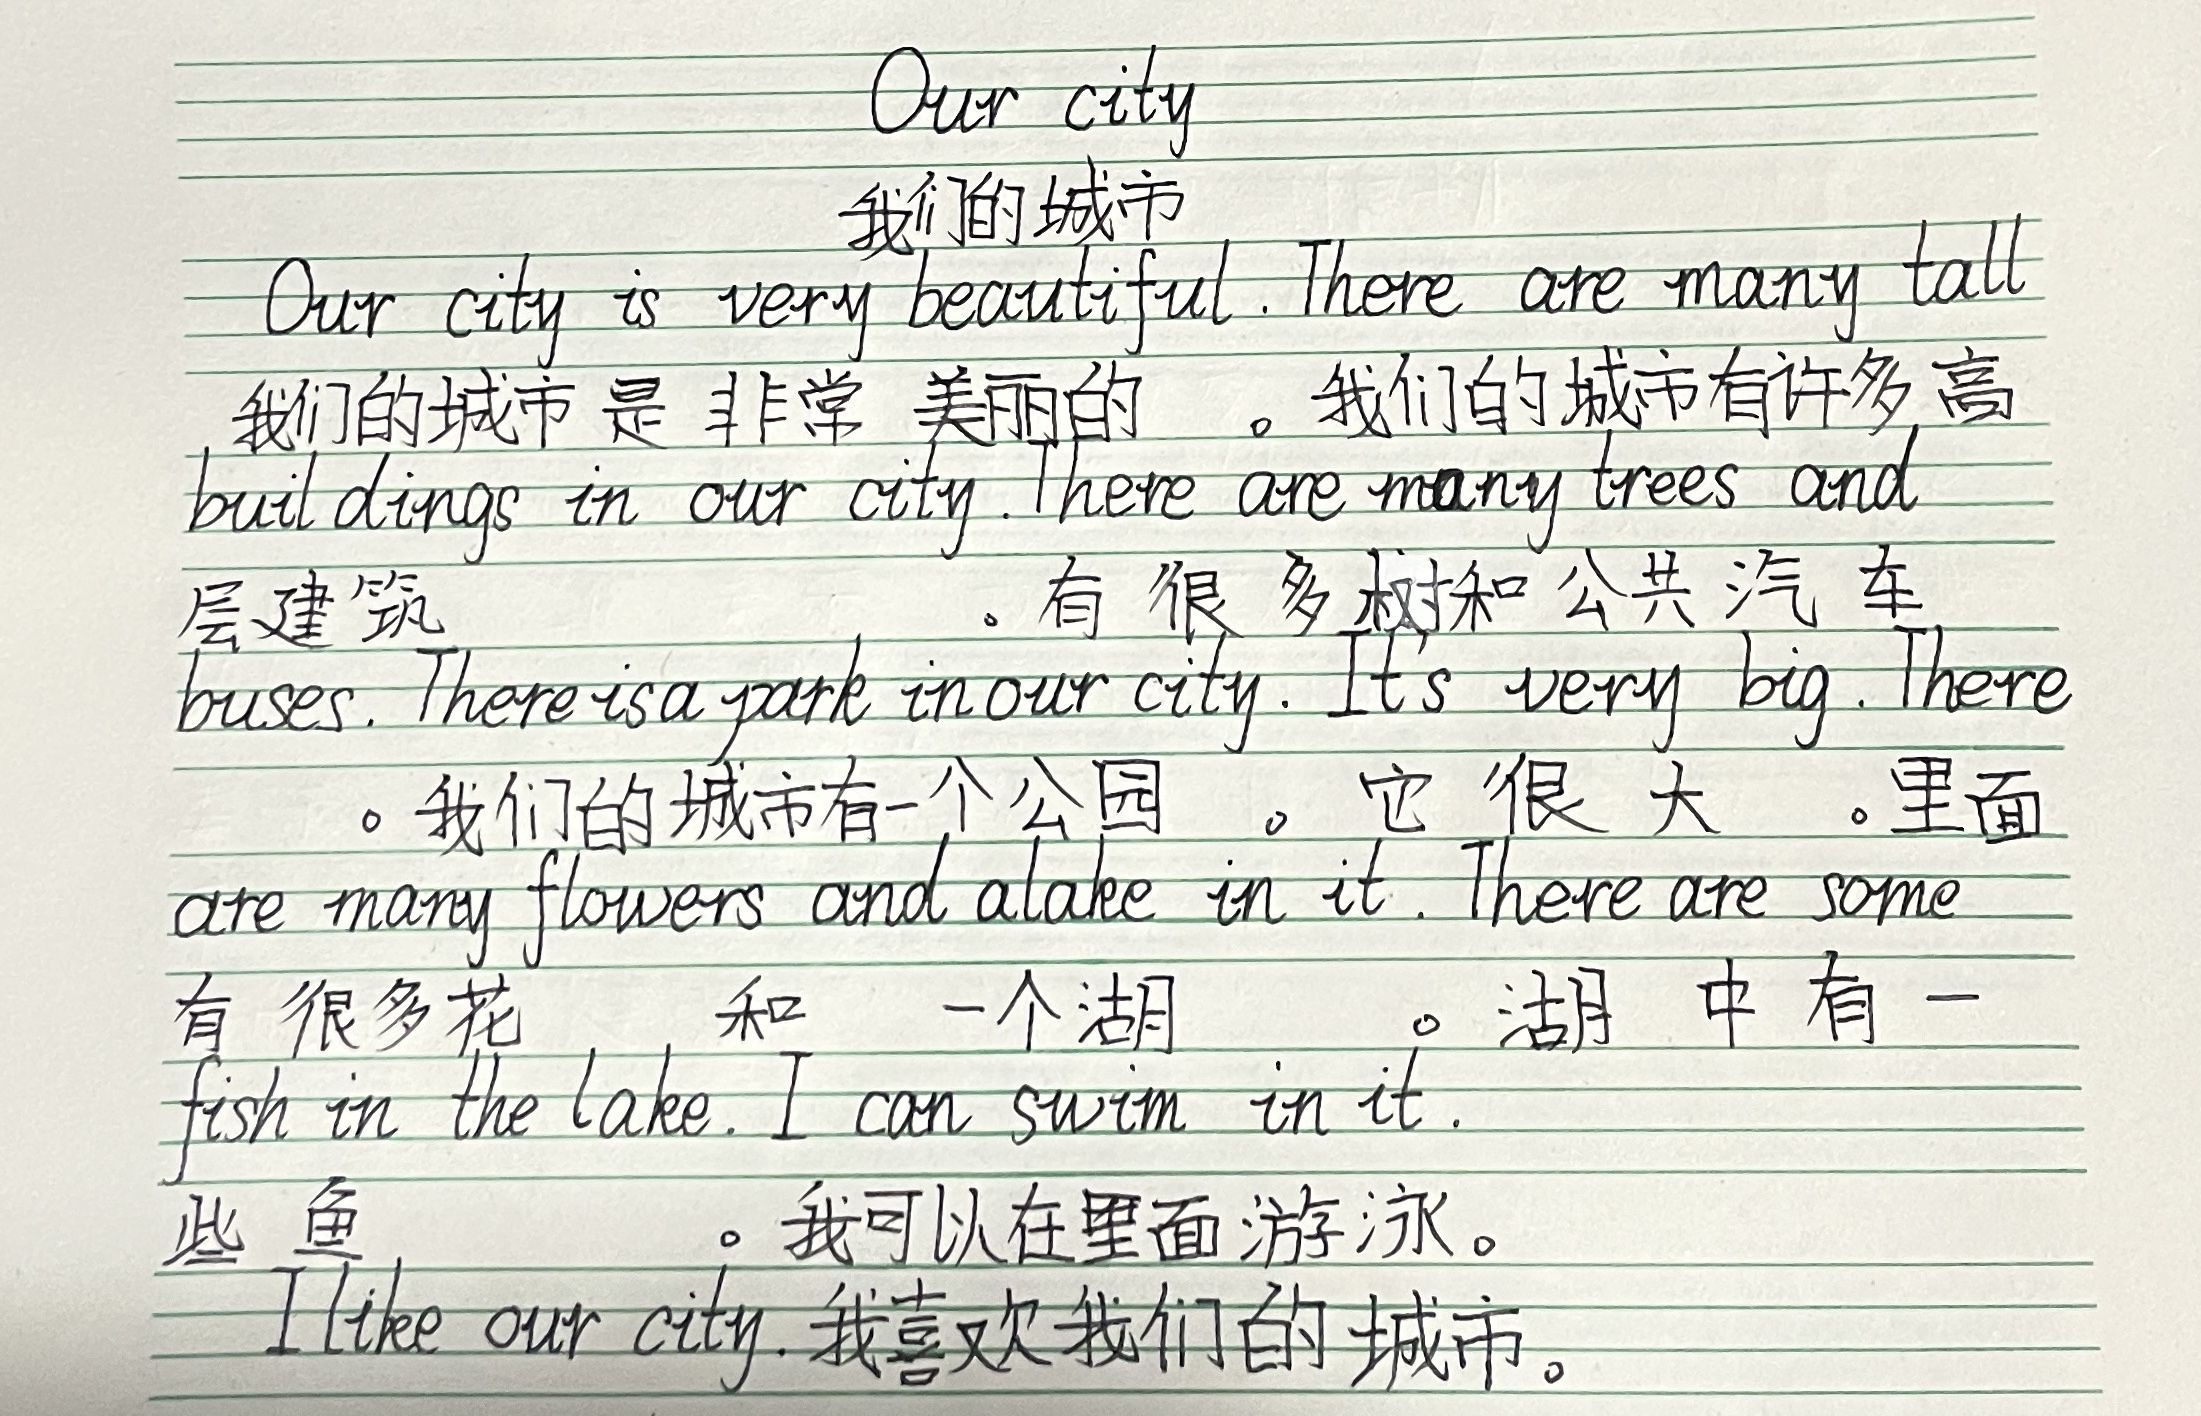 Our city
我们的城市
Our city is very beautiful. There are many tall
我们的城市是非常美丽的。我们的城市有许多高
buildings in our city. There are many trees and
层建筑。有很多树和公共汽车
buses. There is a park in our city. It's very big. There
。我们的城市有一个公园。它很大。里面
are many flowers and a lake in it. There are some
有很多花和一个湖。湖中有一
fish in the lake. I can swim in it.
些鱼。我可以在里面游泳。
I like our city. 我喜欢我们的城市。